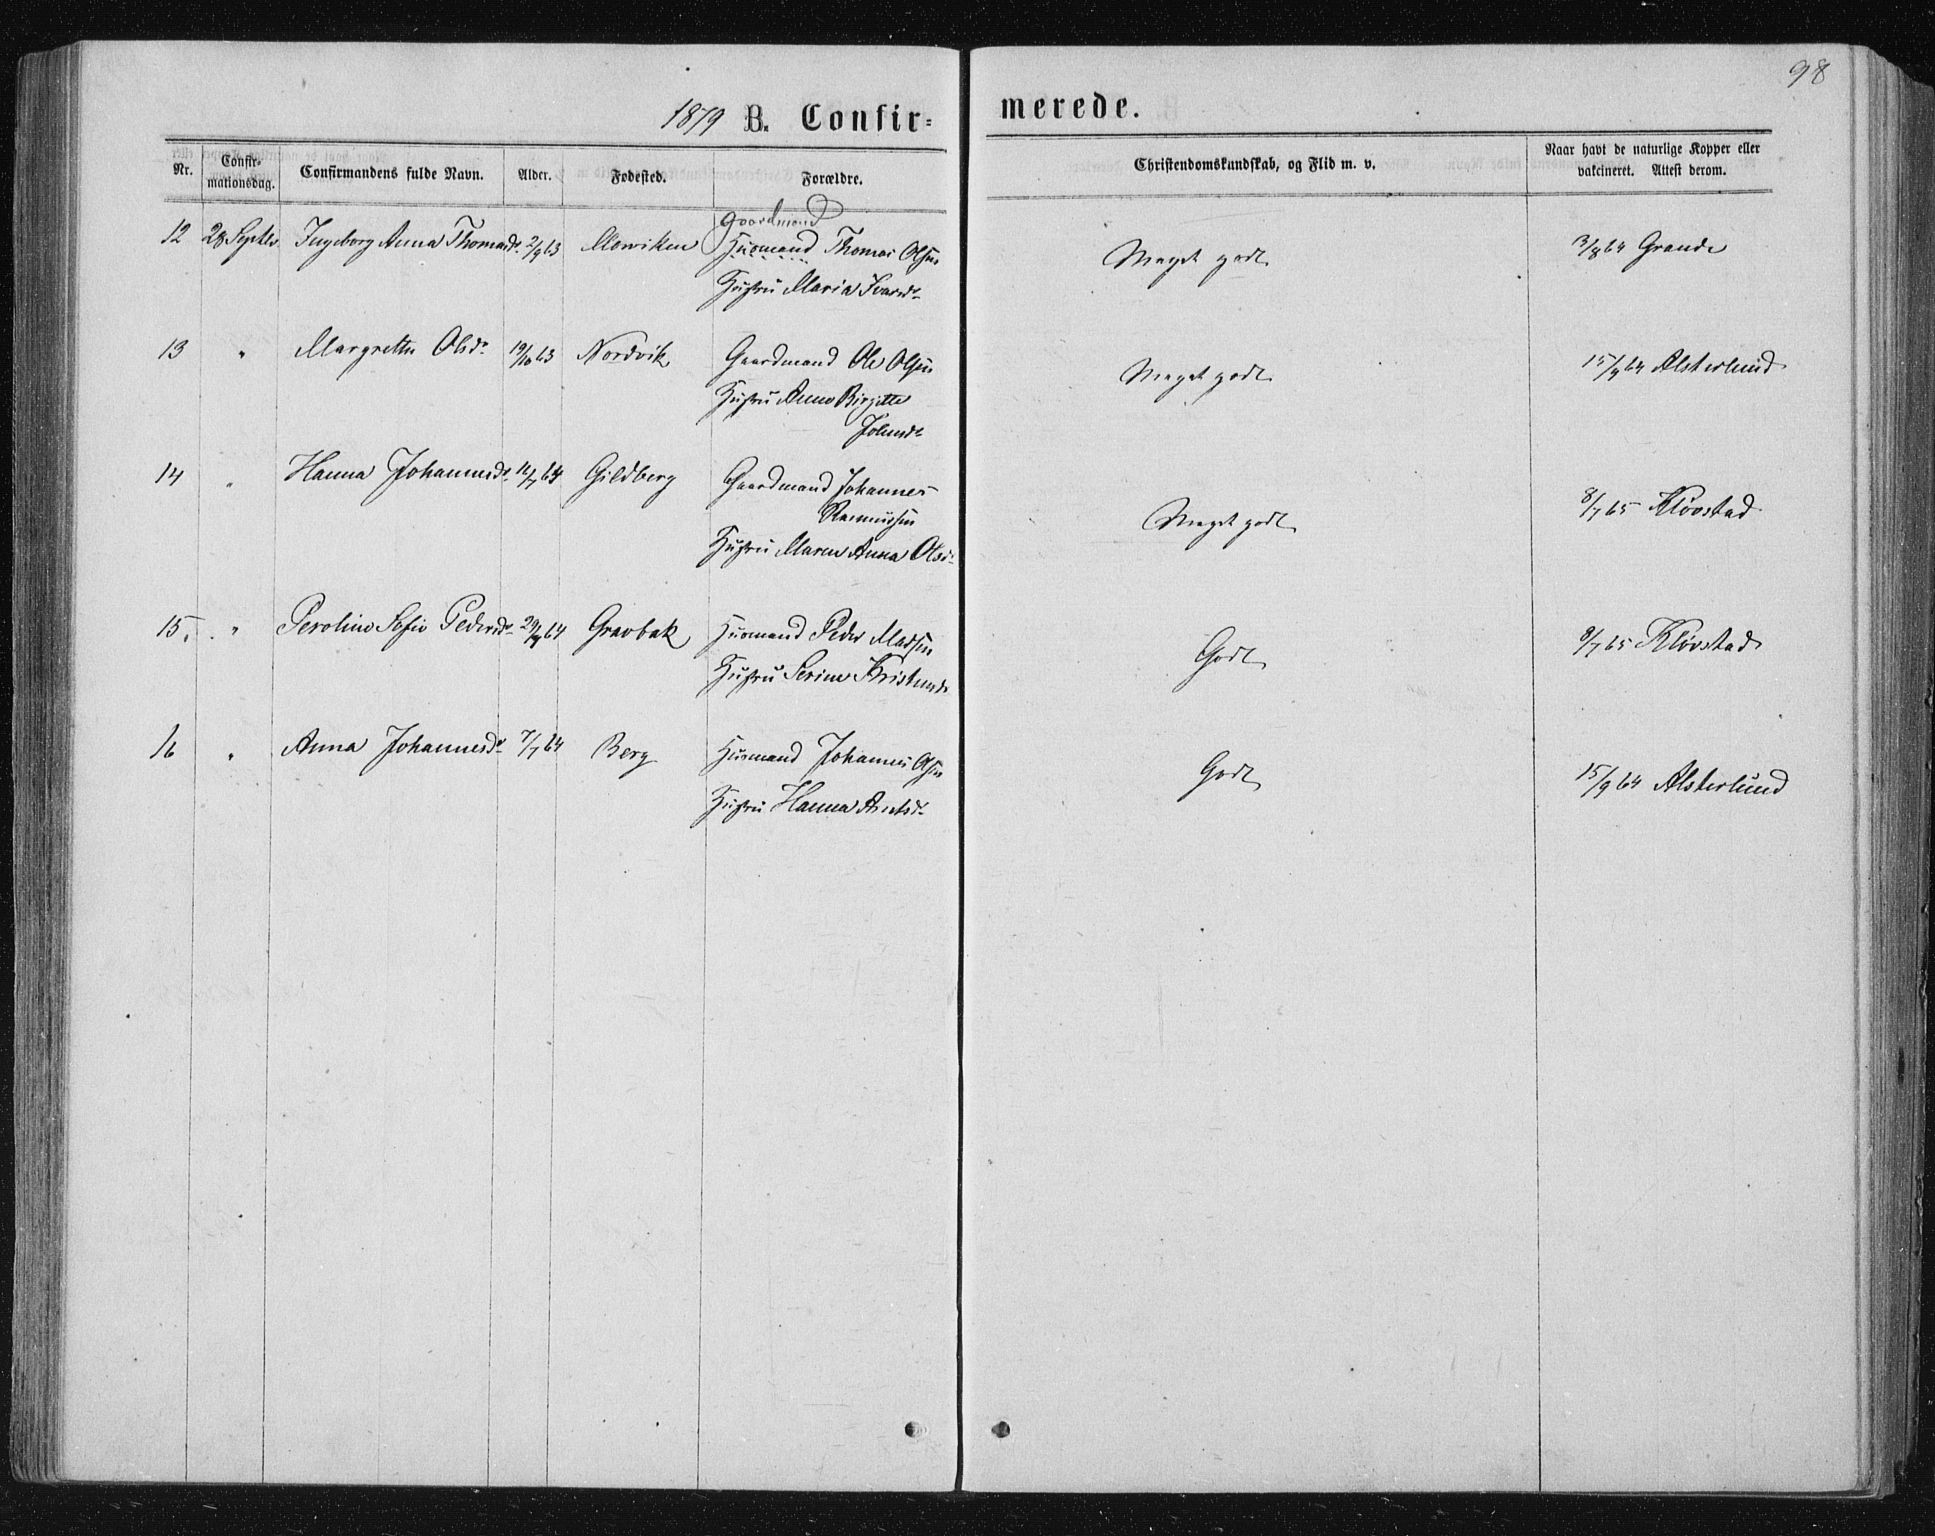 98
1879 B. Confirmerede.
Nr. Confirmationsdag. Confirmandens fulde Navn. Alder. Fødested. Forældre. Christendomskundskab, og Flid m. v. Naar havt de naturlige Kopper eller vakcineret. Attest derom.
Gaardmand
12 28 Septbr. Ingeborg Anna Thomasdr. 2/9 63 Husmand Thomas Olsen Meget godt 3/8 64 Grande
Hustru Maria Ivarsdr
13 " Margrethe Olsdr 19/10 63 Nordvik Gaardmand Ole Olsen Meget godt 15/9 64 Alsterlund
Hustru Anna Birgitte
Johnsdr
14 " Hanna Johannesdr 11/7 64 Gildberg Gaardmand Johannes Meget godt 8/7 65 Kløvstad
Rasmussen
Hustru Maren Anna Olsdr
15. " Peroline Sofie Pedersdr 29/9 64 Gravbak Husmand Peder Madsen Godt 8/7 65 Kløvstad
Hustru Serine Kristensdr
16 " Anna Johannesdr 7/7 64 Berg Husmand Johannes Olsen Godt 15/9 64 Alsterlund
Hustru Hanna Arntsdr